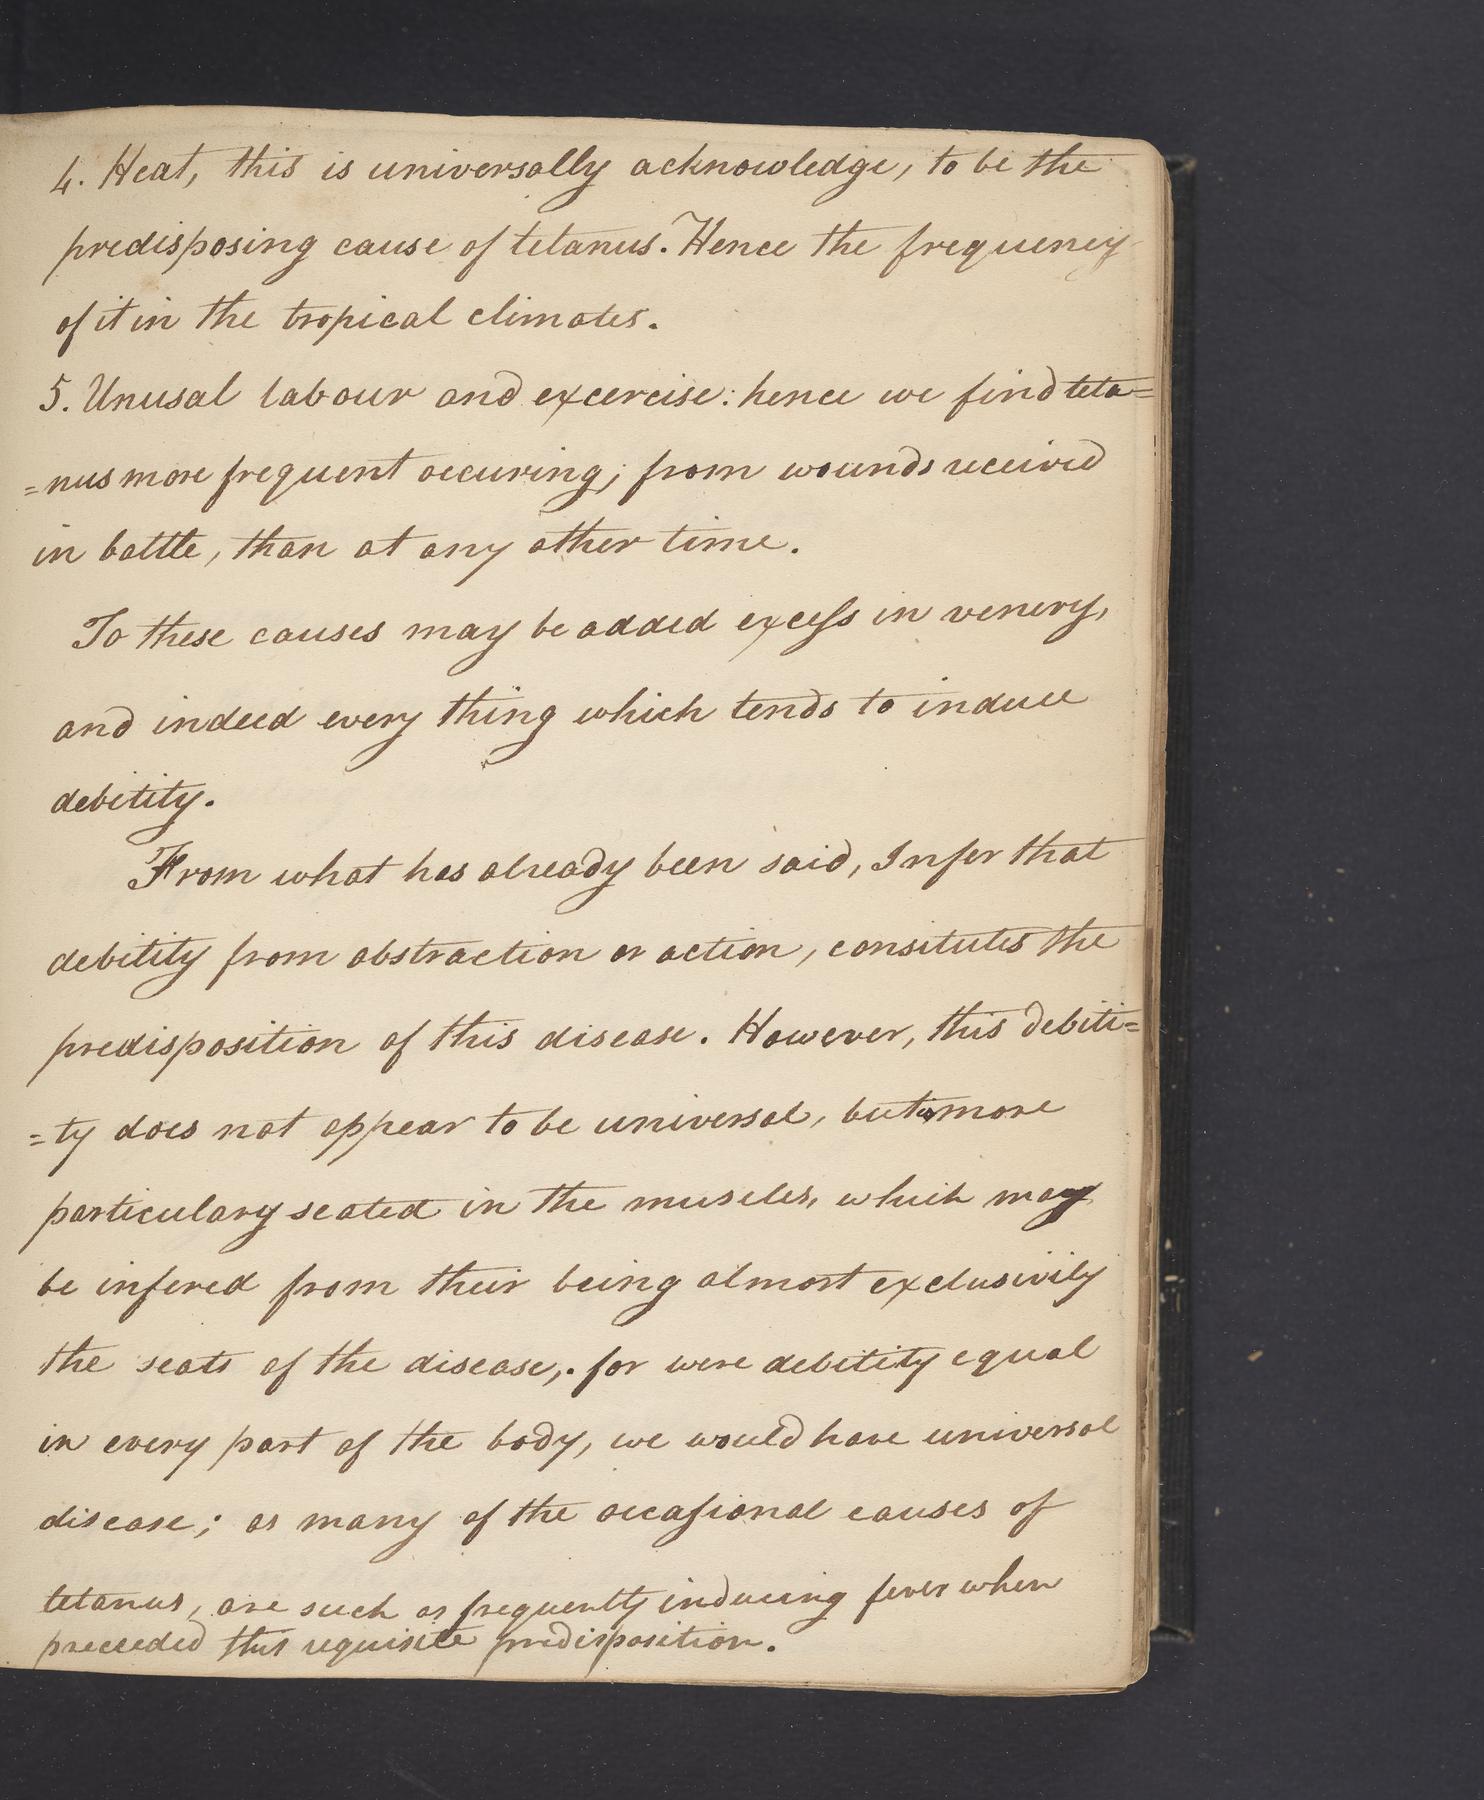 4. Heat, this is universally acknowledge, to be the
predisposing cause of tetanus. Hence the frequency
of it in the tropical climates.
5. Unusal labour and excercise: hence we find teta=
=nus more frequent occuring; from wounds received
in battle, than at any other time.
To these causes may be added excess in venery,
and indeed every thing which tends to induce
debitity.
From what has already been said, Infer that
debitity from abstraction or action, consitutes the
predisposition of this disease. However, this debiti=
=ty does not appear to be universal, but more
particulary seated in the muscles, which may
be infered from their being almost exclusivily
the seats of the disease,. for were debitity equal
in every part of the body, we would have universal
disease; as many of the occasional causes of
tetanus, are such as frequently inducing fever when
preceeded this requisite predisposition.